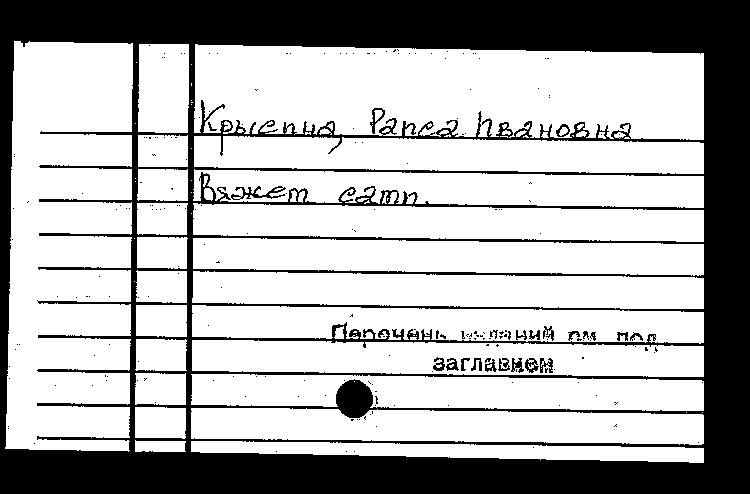 Крысина, Раиса Ивановна
Вяжем сами.
Перечень изданий см. под
заглавием